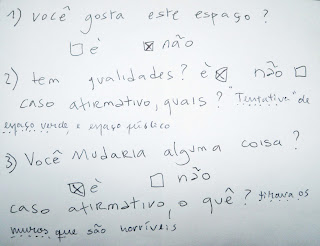 1) Você gosta este espaço?
☐ è ☒ não
2) tem qualidades? è ☒ não ☐
caso afirmativo, quais? "Tentativa" de
espaço verde e espaço público
3) Você Mudaria alguma coisa?
☒ è ☐ não
caso afirmativo, o quê? tirava os
muros que são horríveis